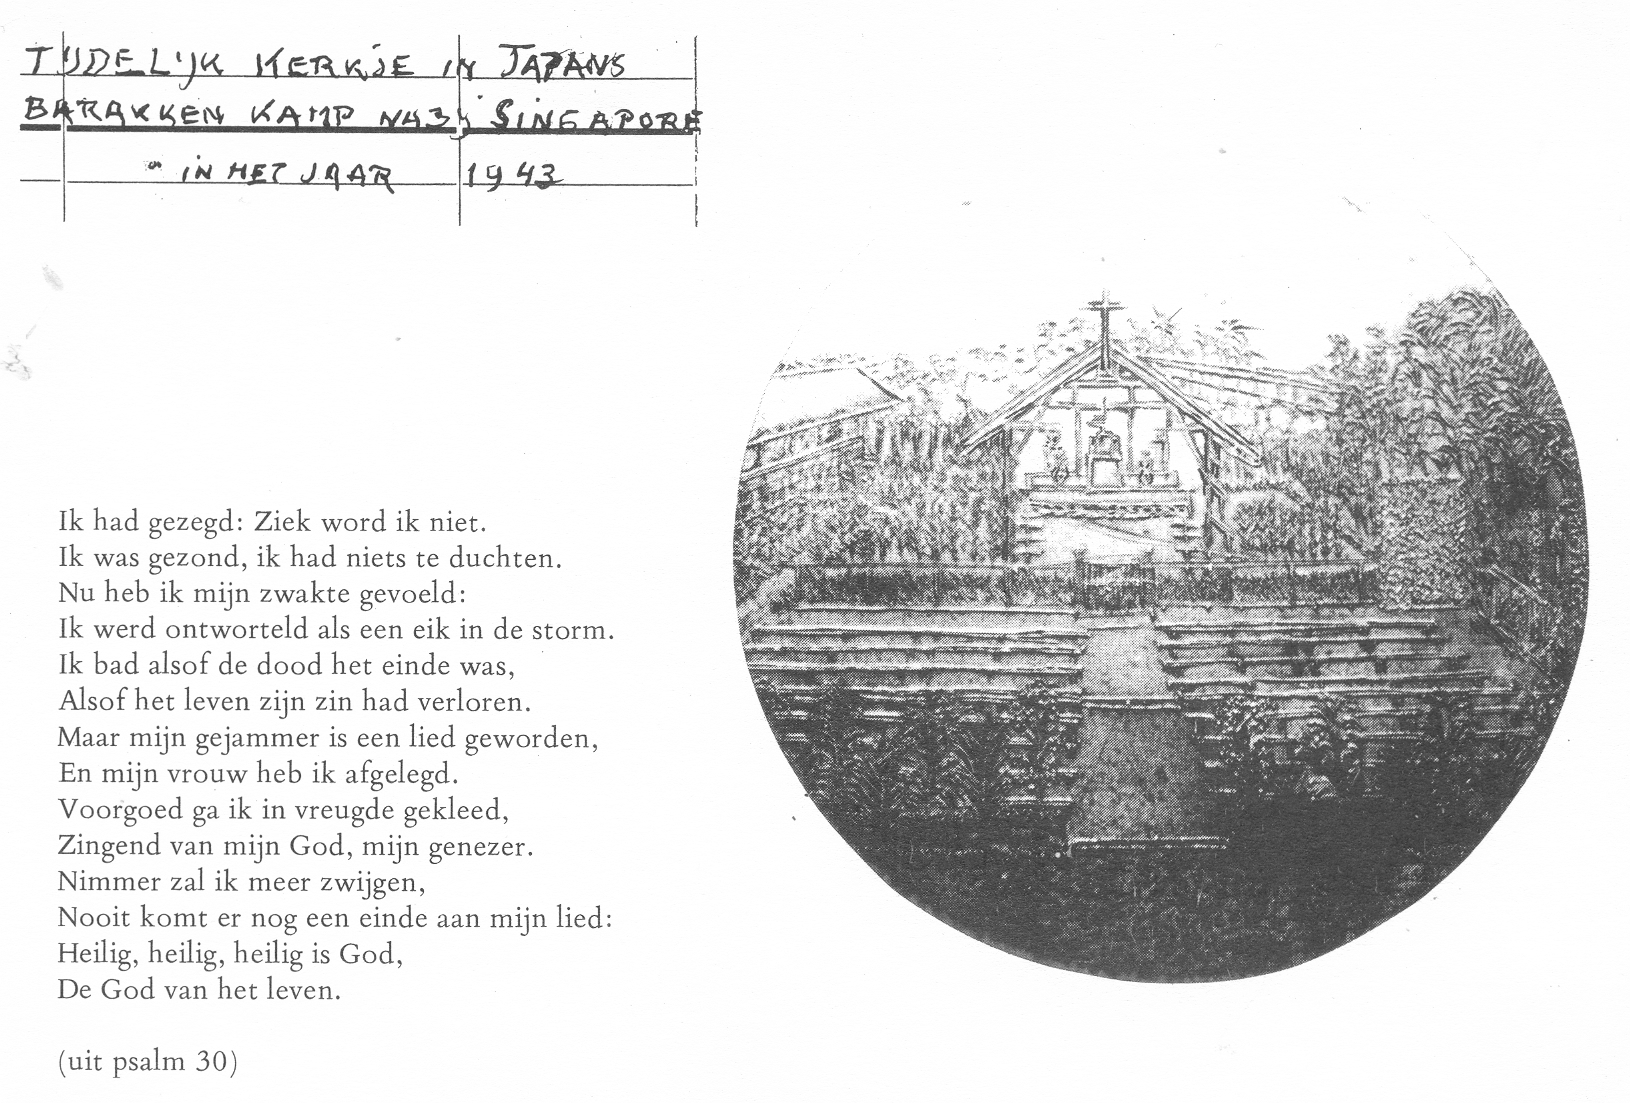 TIJDELIJK KERKJE IN JAPANS
BARAKKEN KAMP NABIJ SINGAPORE
IN HET JAAR 1943
Ik had gezegd: Ziek word ik niet.
Ik was gezond, ik had niets te duchten.
Nu heb ik mijn zwakte gevoeld:
Ik werd ontworteld als een eik in de storm.
Ik bad alsof de dood het einde was,
Alsof het leven zijn zin had verloren.
Maar mijn gejammer is een lied geworden,
En mijn vrouw heb ik afgelegd.
Voorgoed ga ik in vreugde gekleed,
Zingend van mijn God, mijn genezer.
Nimmer zal ik meer zwijgen,
Nooit komt er nog een einde aan mijn lied:
Heilig, heilig, heilig is God,
De God van het leven.
(uit psalm 30)